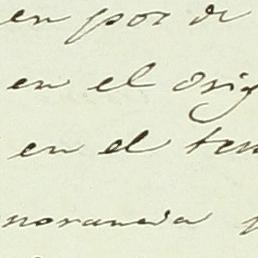 en por de
en el orig
en el ten
norancia p